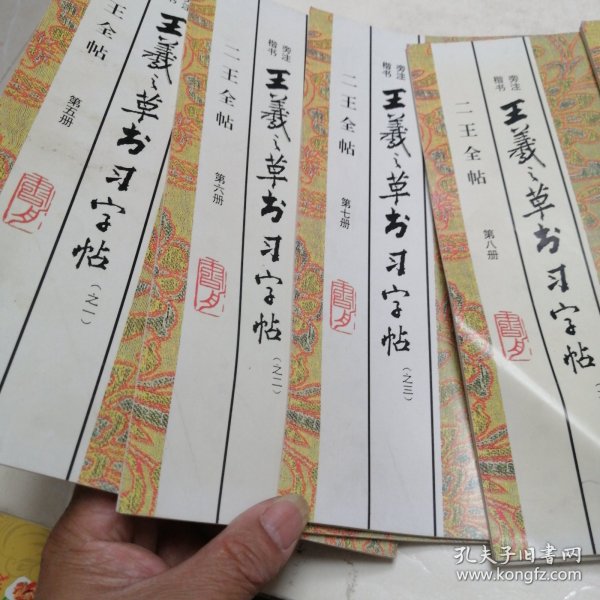 二王全帖
第五册
王羲之草书习字帖
(之一)
二王全帖
第六册
楷书
旁注
王羲之草书习字帖
(之二)
二王全帖
第七册
楷书
旁注
王羲之草书习字帖
(之三)
二王全帖
第八册
楷书
旁注
王羲之草书习字帖
孔夫子旧书网
www.kongfz.com